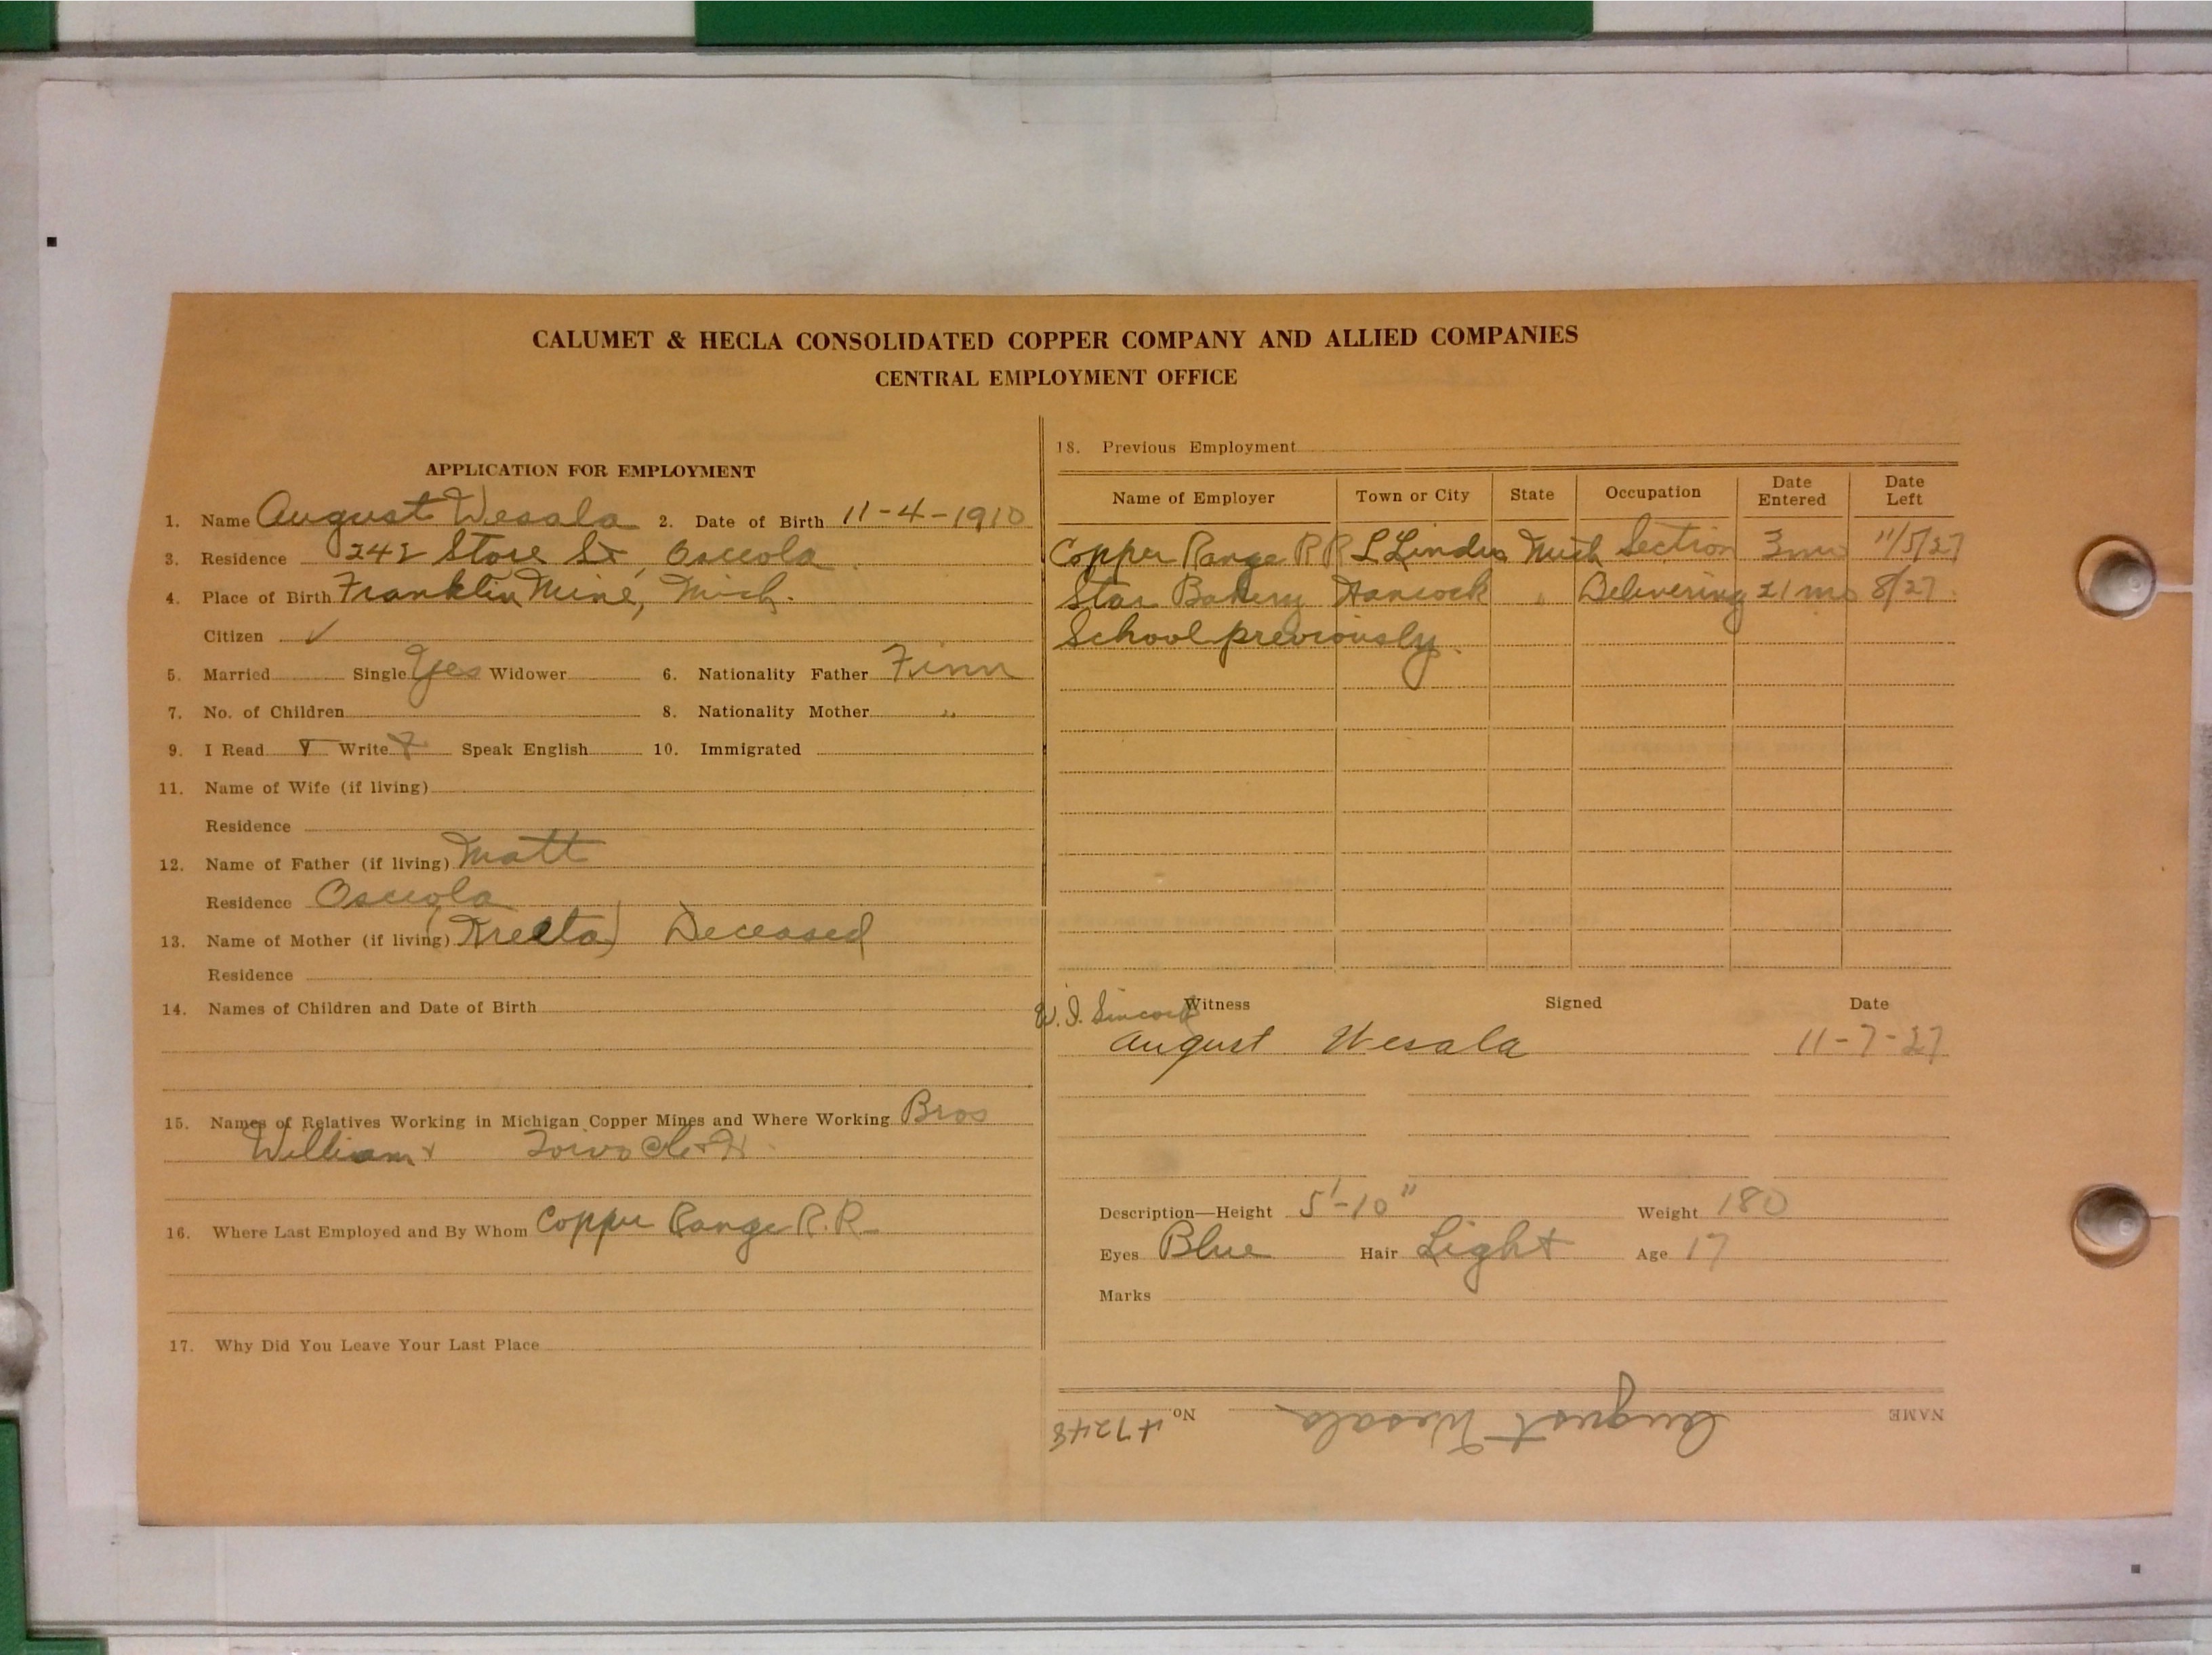 CALUMET & HECLA CONSOLIDATED COPPER COMPANY AND ALLIED COMPANIES
CENTRAL EMPLOYMENT OFFICE
APPLICATION FOR EMPLOYMENT
1. Name August Wesala 2. Date of Birth 11-4-1910
3. Residence 242 Store St, Osceola
4. Place of Birth Franklin Mine, Mich.
Citizen ✓
5. Married Single Yes Widower 6. Nationality Father Finn
7. No. of Children 8. Nationality Mother "
9. I Read Write Speak English 10. Immigrated
11. Name of Wife (if living)
Residence
12. Name of Father (if living) Matt
Residence Osceola
13. Name of Mother (if living) (Kreeta) Deceased
Residence
14. Names of Children and Date of Birth
15. Names of Relatives Working in Michigan Copper Mines and Where Working Bros
William & Toivo C&H
16. Where Last Employed and By Whom Copper Range R.R.
17. Why Did You Leave Your Last Place
18. Previous Employment
Name of Employer Town or City State Occupation Date Entered Date Left
Copper Range RR L Linden Mich Section 3 mo 11/5/27
Star Bakery Hancock " Delivering 21 mo 8/27
School previously.
Witness Signed Date
W. J.
August Wesala 11-7-27
Description—Height 5'-10" Weight 180
Eyes Blue Hair Light Age 17
Marks
NAME August Wesala No. 47248